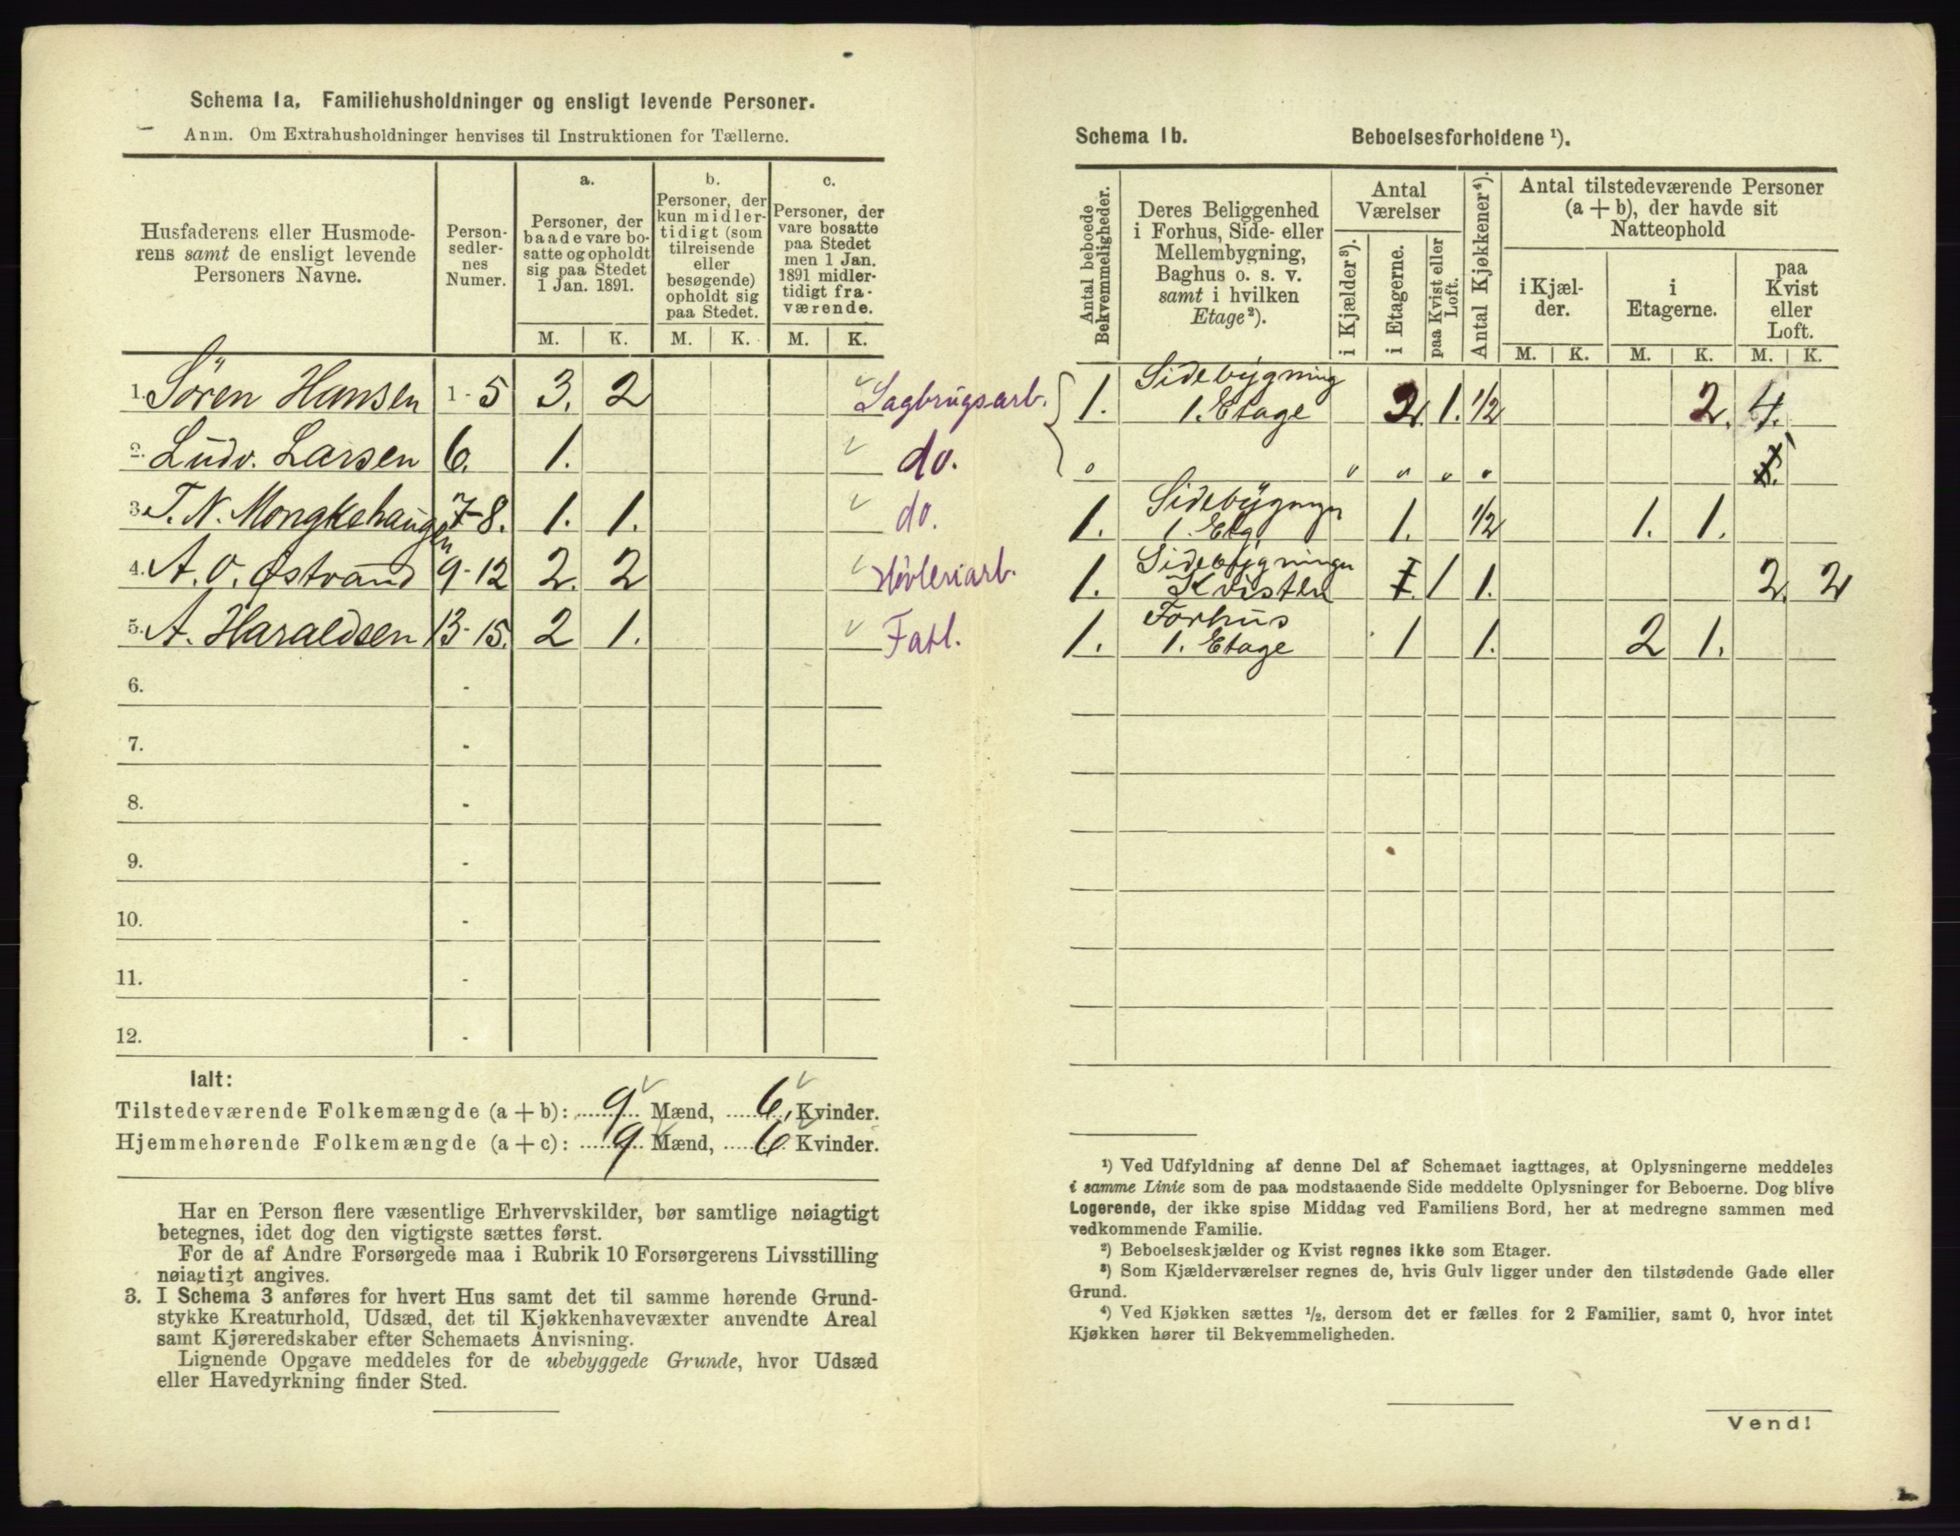 Schema 1a. Familiehusholdninger og ensligt levende Personer.
Anm. Om Extrahusholdninger henvises til Instruktionen for Tællerne.
Husfaderens eller Husmode-
rens samt de ensligt levende
Personers Navne.
Person-
sedler-
nes
Numer.
a.
Personer, der
baade vare bo-
satte og opholdt
sig paa Stedet
1 Jan. 1891.
b.
Personer, der
kun midler-
tidigt (som
tilreisende
eller
besøgende)
opholdt sig
paa Stedet.
c.
Personer, der
vare bosatte
paa Stedet
men 1 Jan.
1891 midler-
tidigt fra-
værende.
M. K. M. K. M. K.
1. Sören Hansen 1-5 3. 2 Sagbrugsarb.
2. Ludv. Larsen 6. 1. do.
3. T. N. Mongkehaugen 7-8. 1. 1. do.
4. A. O. Østvand 9-12 2. 2 Høvleriarb.
5. A. Haraldsen 13-15. 2 1.
6. -
7. -
8. -
9. -
10. -
11. -
12. -
Ialt:
Tilstedeværende Folkemængde (a + b): 9 Mænd, 6. Kvinder.
Hjemmehørende Folkemængde (a + c): 9 Mænd, 6 Kvinder.
Har en Person flere væsentlige Erhvervskilder, bør samtlige nøiagtigt
betegnes, idet dog den vigtigste sættes først.
For de af Andre Forsørgede maa i Rubrik 10 Forsørgerens Livsstilling
nøiagtigt angives.
3. I Schema 3 anføres for hvert Hus samt det til samme hørende Grund-
stykke Kreaturhold, Udsæd, det til Kjøkkenhavevæxter anvendte Areal
samt Kjøreredskaber efter Schemaets Anvisning.
Lignende Opgave meddeles for de ubebyggede Grunde, hvor Udsæd
eller Havedyrkning finder Sted.
Schema 1b. Beboelsesforholdene ¹).
Antal beboede
Bekvemmeligheder.
Deres Beliggenhed
i Forhus, Side- eller
Mellembygning,
Baghus o. s. v.
samt i hvilken
Etage²).
Antal
Værelser
i Kjælder³).
i Etagerne.
paa Kvist eller
Loft.
Antal Kjøkkener⁴).
Antal tilstedeværende Personer
(a + b), der havde sit
Natteophold
i Kjæl-
der.
i
Etagerne.
paa
Kvist
eller
Loft.
M. K. M. K. M. K.
1. Sidebygning
1. Etage 2. 1. 1/2 2. 4.
" " " " "
1. Sidebygngn
1. Etg 1. 1/2 1. 1.
1. Sidebygningn
Kvisten 1 1. 2. 2
1. Forhus
1. Etage 1 1. 2 1.
¹) Ved Udfyldning af denne Del af Schemaet iagttages, at Oplysningerne meddeles
i samme Linie som de paa modstaaende Side meddelte Oplysninger for Beboerne. Dog blive
Logerende, der ikke spise Middag ved Familiens Bord, her at medregne sammen med
vedkommende Familie.
²) Beboelseskjælder og Kvist regnes ikke som Etager.
³) Som Kjælderværelser regnes de, hvis Gulv ligger under den tilstødende Gade eller
Grund.
⁴) Ved Kjøkken sættes ½, dersom det er fælles for 2 Familier, samt 0, hvor intet
Kjøkken hører til Bekvemmeligheden.
Vend!